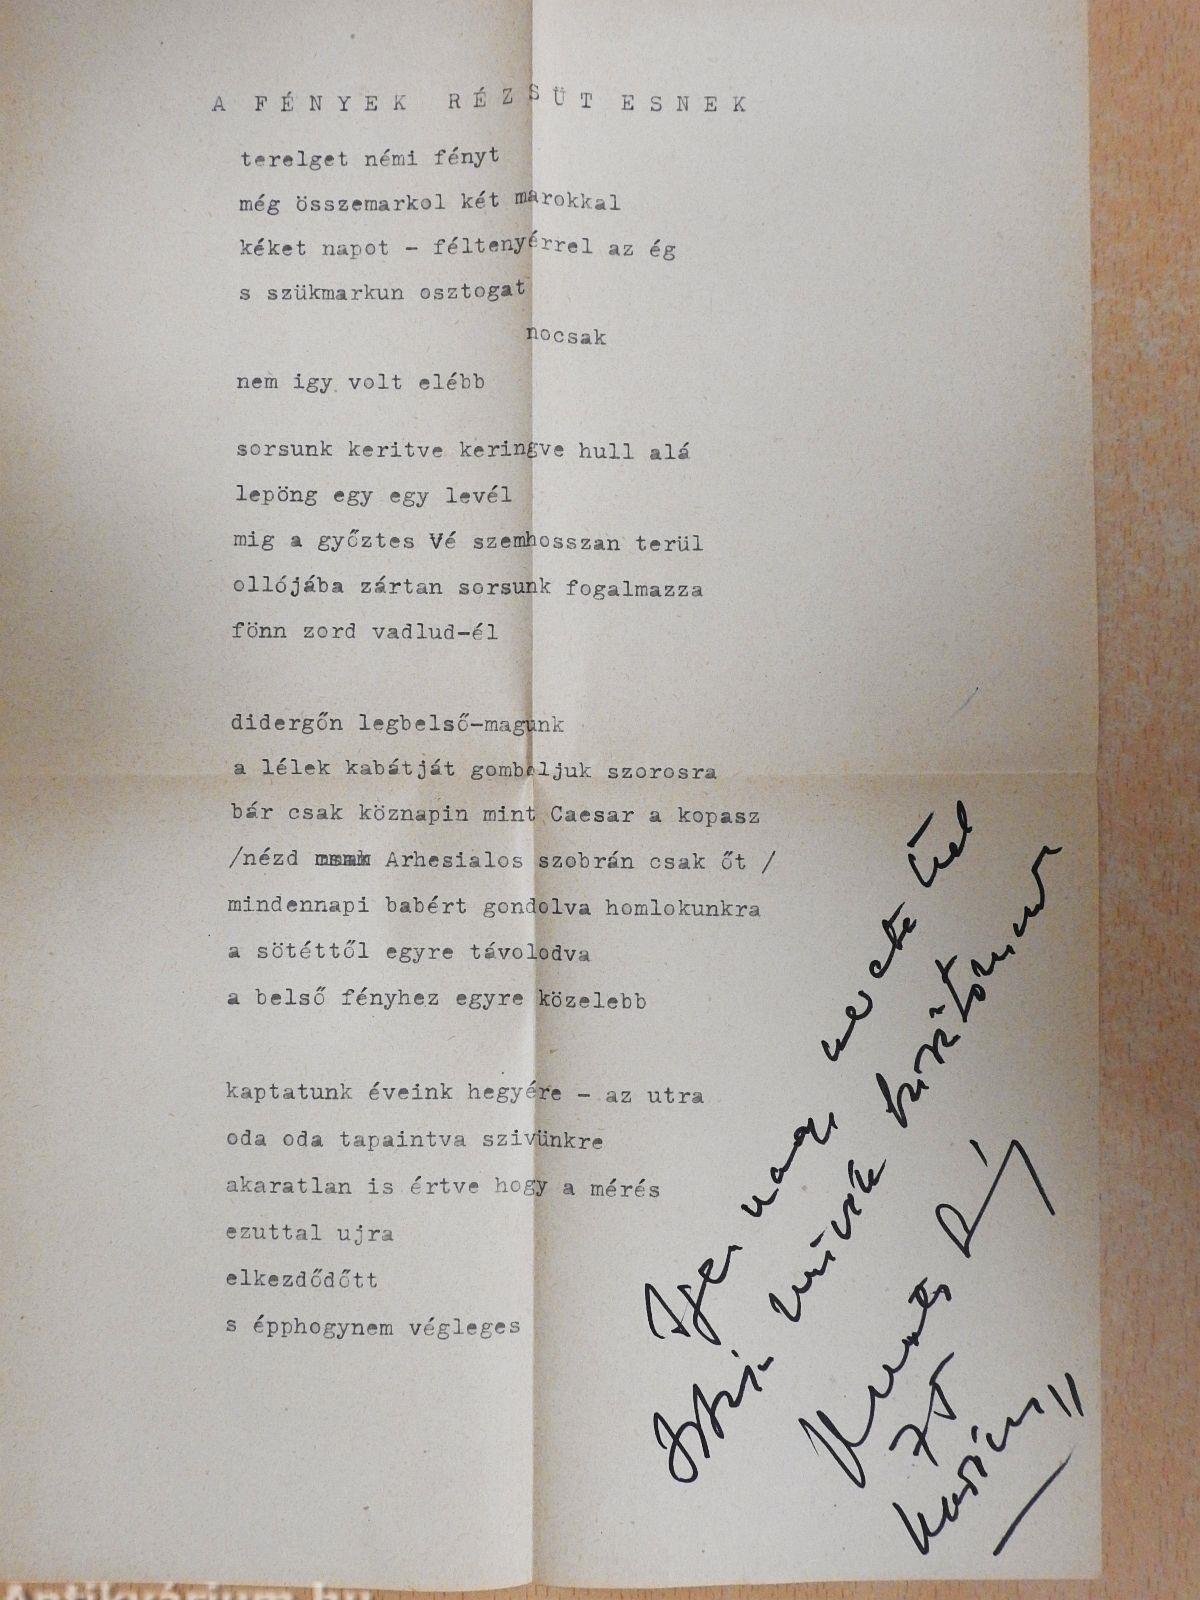 A FÉNYEK RÉZSÜT ESNEK
terelget némi fényt
még összemarkol két marokkal
kéket napot - féltenyérrel az ég
s szükmarkun osztogat
nocsak
nem igy volt elébb
sorsunk keritve keringve hull alá
lepöng egy egy levél
mig a győztes Vé szemhosszan terül
ollójába zártan sorsunk fogalmazza
fönn zord vadlud-él
didergőn legbelső-magunk
a lélek kabátját gomboljuk szorosra
bár csak köznapin mint Caesar a kopasz
/nézd Arhesialos szobrán csak őt /
mindennapi babért gondolva homlokunkra
a sötéttől egyre távolodva
a belső fényhez egyre közelebb
kaptatunk éveink hegyére - az utra
oda oda tapaintva szivünkre
akaratlan is értve hogy a mérés
ezuttal ujra
elkezdődőtt
s épphogynem végleges
Igen nagy szeretettel
75
karácsony
Antikvárium.hu